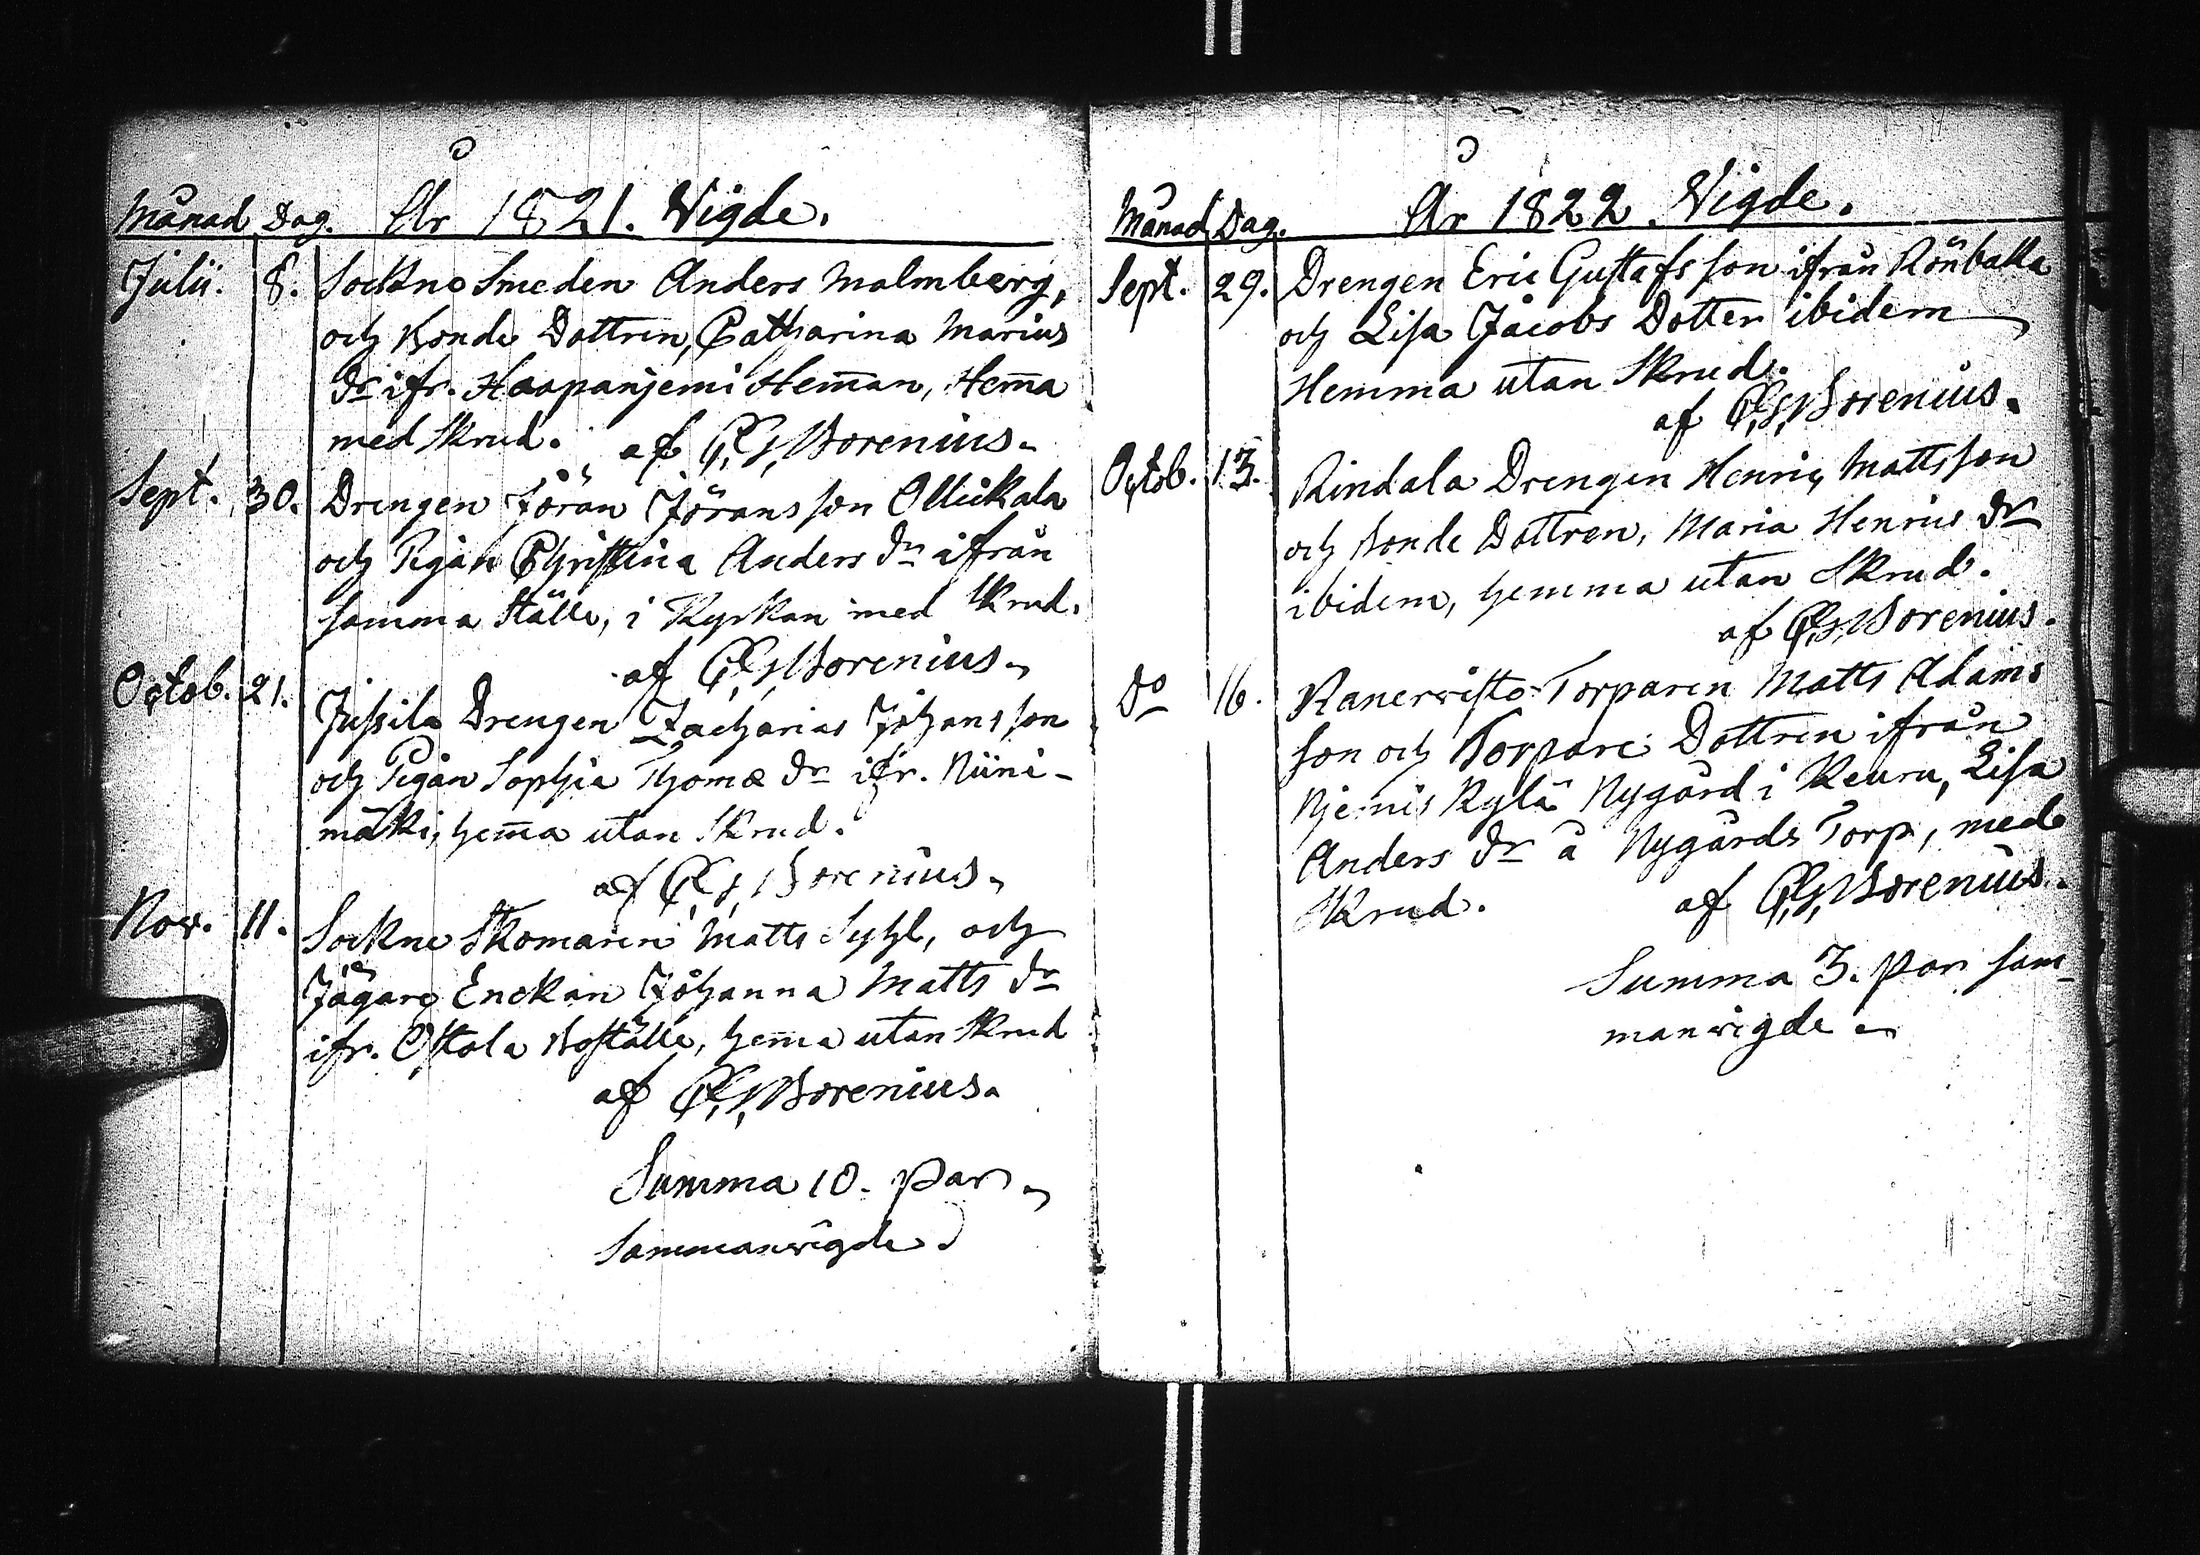 Månad Dag. År 1821. Vigde.
Julii. 8. Sockne Smeden Anders Malmberg,
och Bonde Dottren, Catharina Marius
dr ifr. Haapanjemi Heman, Hema
med Skrud. af C. G. Borenius.
Sept. 30. Drengen Jöran Jöransson Ollickala
och Pigan Christina Anders dr ifrån
samma Ställe, i Kyrkan med Skrud.
af C. G. Borenius.
Octob. 21. Jussila Drengen Zacharias Johansson
och Pigan Sophia Thomæ dr ifr. Niini-
mäki, hema utan Skrud.
af C. G. Borenius.
Nov. 11. Sockne Skomaren Matts Syhl, och
Jägare Enckan Johanna Matts dr
ifr. Ostola Boställe, hema utan Skrud
af C. G. Borenius.
Summa 10. Par
Sammanvigde
Månad Dag. År 1822. Vigde.
Sept. 29. Drengen Eric Gustafsson ifrån Rönbacka
och Lisa Jacobs Dotter ibidem
Hemma utan Skrud.
af C. G. Borenius.
Octob. 13. Rindala Drengen Henric Mattsson
och Bonde Dottren, Maria Henrics dr
ibidem, hemma utan Skrud.
af C. G. Borenius.
do 16. Torparen Matts Adams
son och Torpare Dottren ifrån
Njemis Kylä Nygård i Keuru, Lisa
Anders dr å Nygårds Torp, med
Skrud. af C. G. Borenius.
Summa 3. Par sam-
manvigde